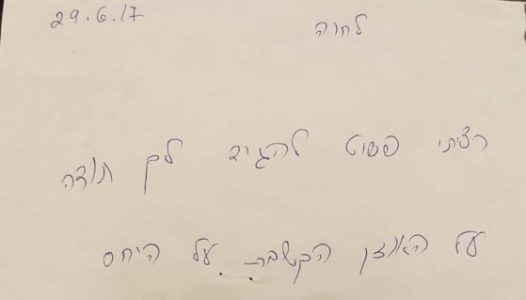 29.6.17
לחוה
רציתי פשוט להגיד לך תודה
על האוזן הקשבת על היחס